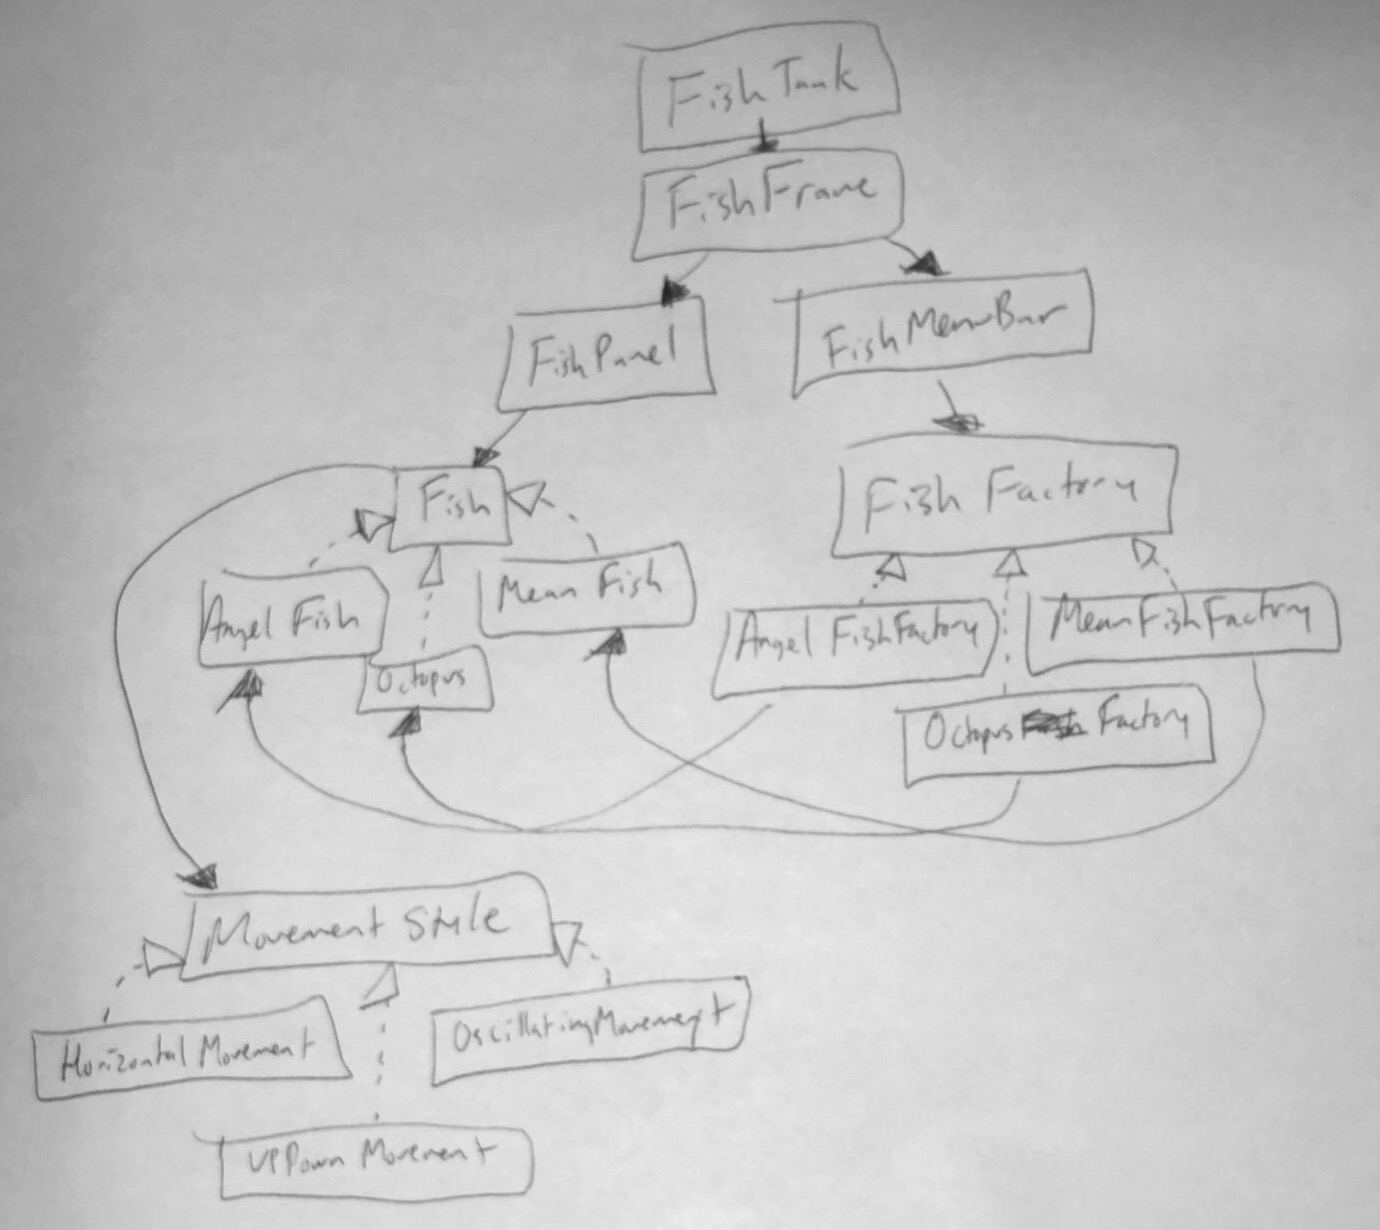 FishTank
FishFrame
FishPanel
FishMenuBar
Fish
Fish Factory
Angel Fish
Mean Fish
Octopus
Angel FishFactory
MeanFishFactory
Octopus Factory
Movement Style
Horizontal Movement
OscillatingMovement
UPDown Movement